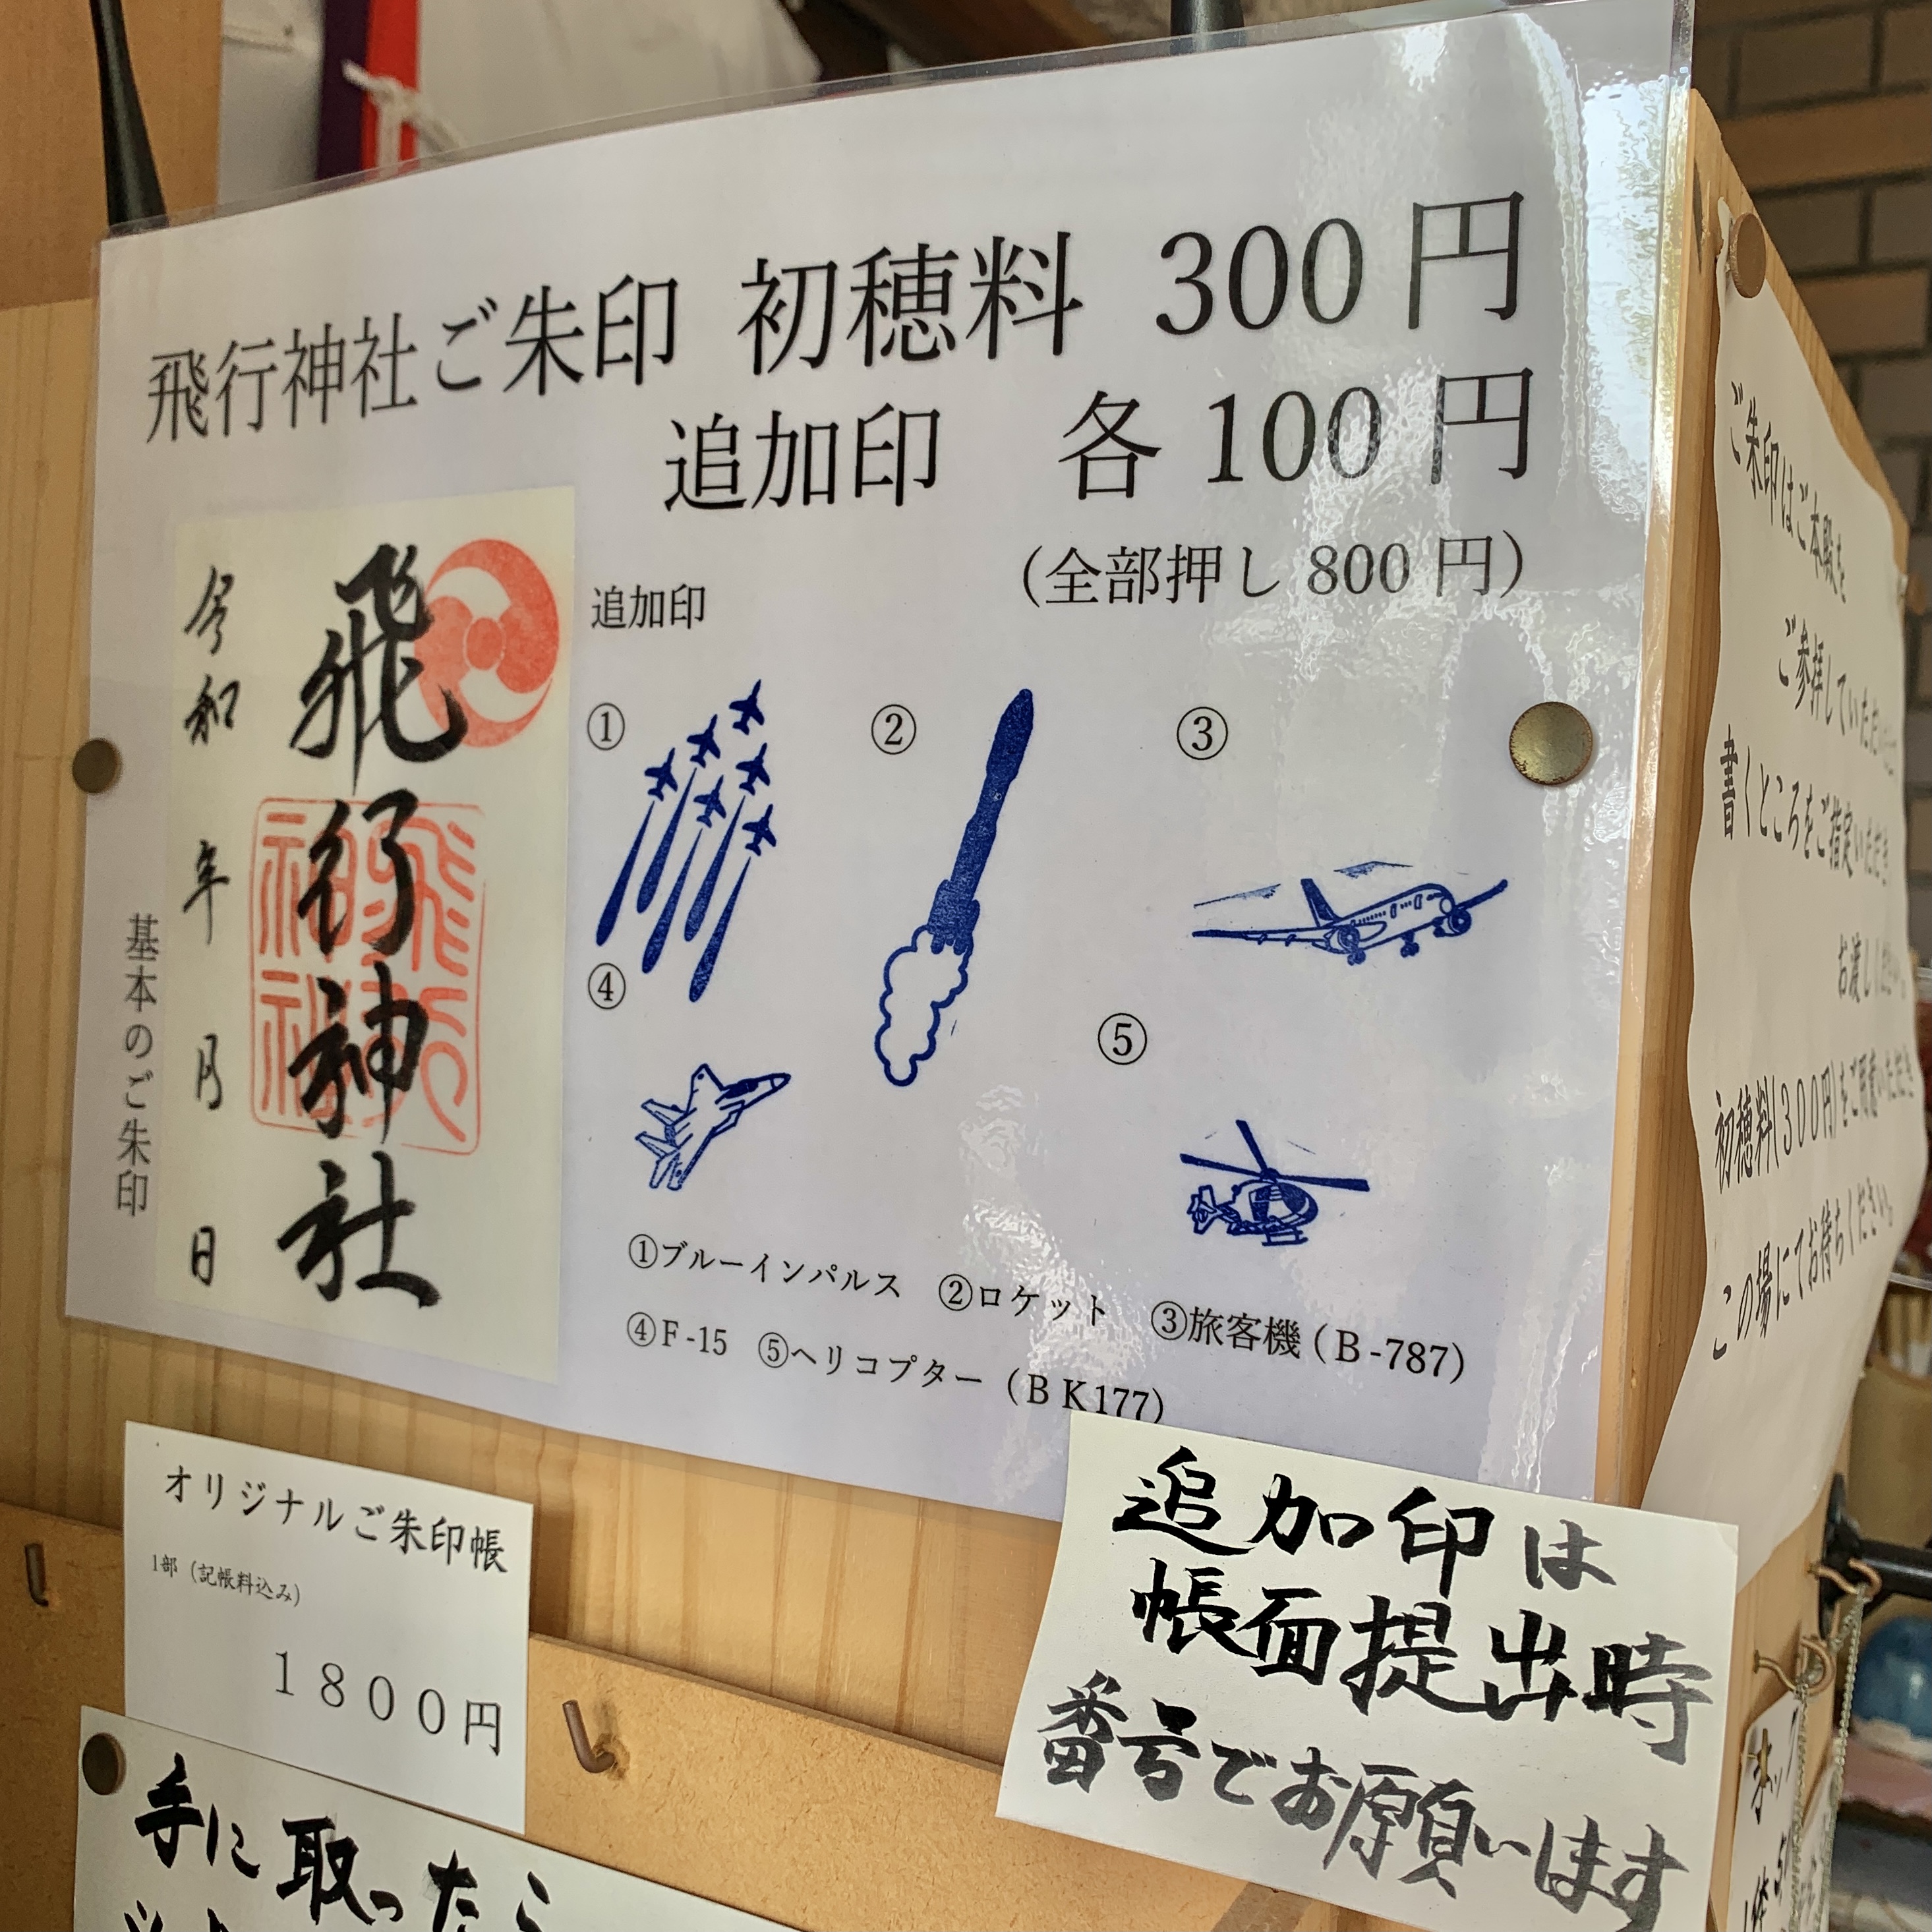 飛行神社ご朱印 初穂料 300円
追加印 各100円
(全部押し 800円)
飛行神社
令和 年 月 日
基本のご朱印
追加印
①
②
③
④
⑤
①ブルーインパルス ②ロケット ③旅客機(B-787)
④F-15 ⑤ヘリコプター(BK177)
オリジナルご朱印帳
1部(記帳料込み)
1800円
追加印は
帳面提出時
番号でお願いします
手に取ったら
ご朱印はご本殿を
ご参拝していただ
書くところをご指定いただき
お渡しください。
初穂料(300円)をご用意いただき
この場にてお待ちください。